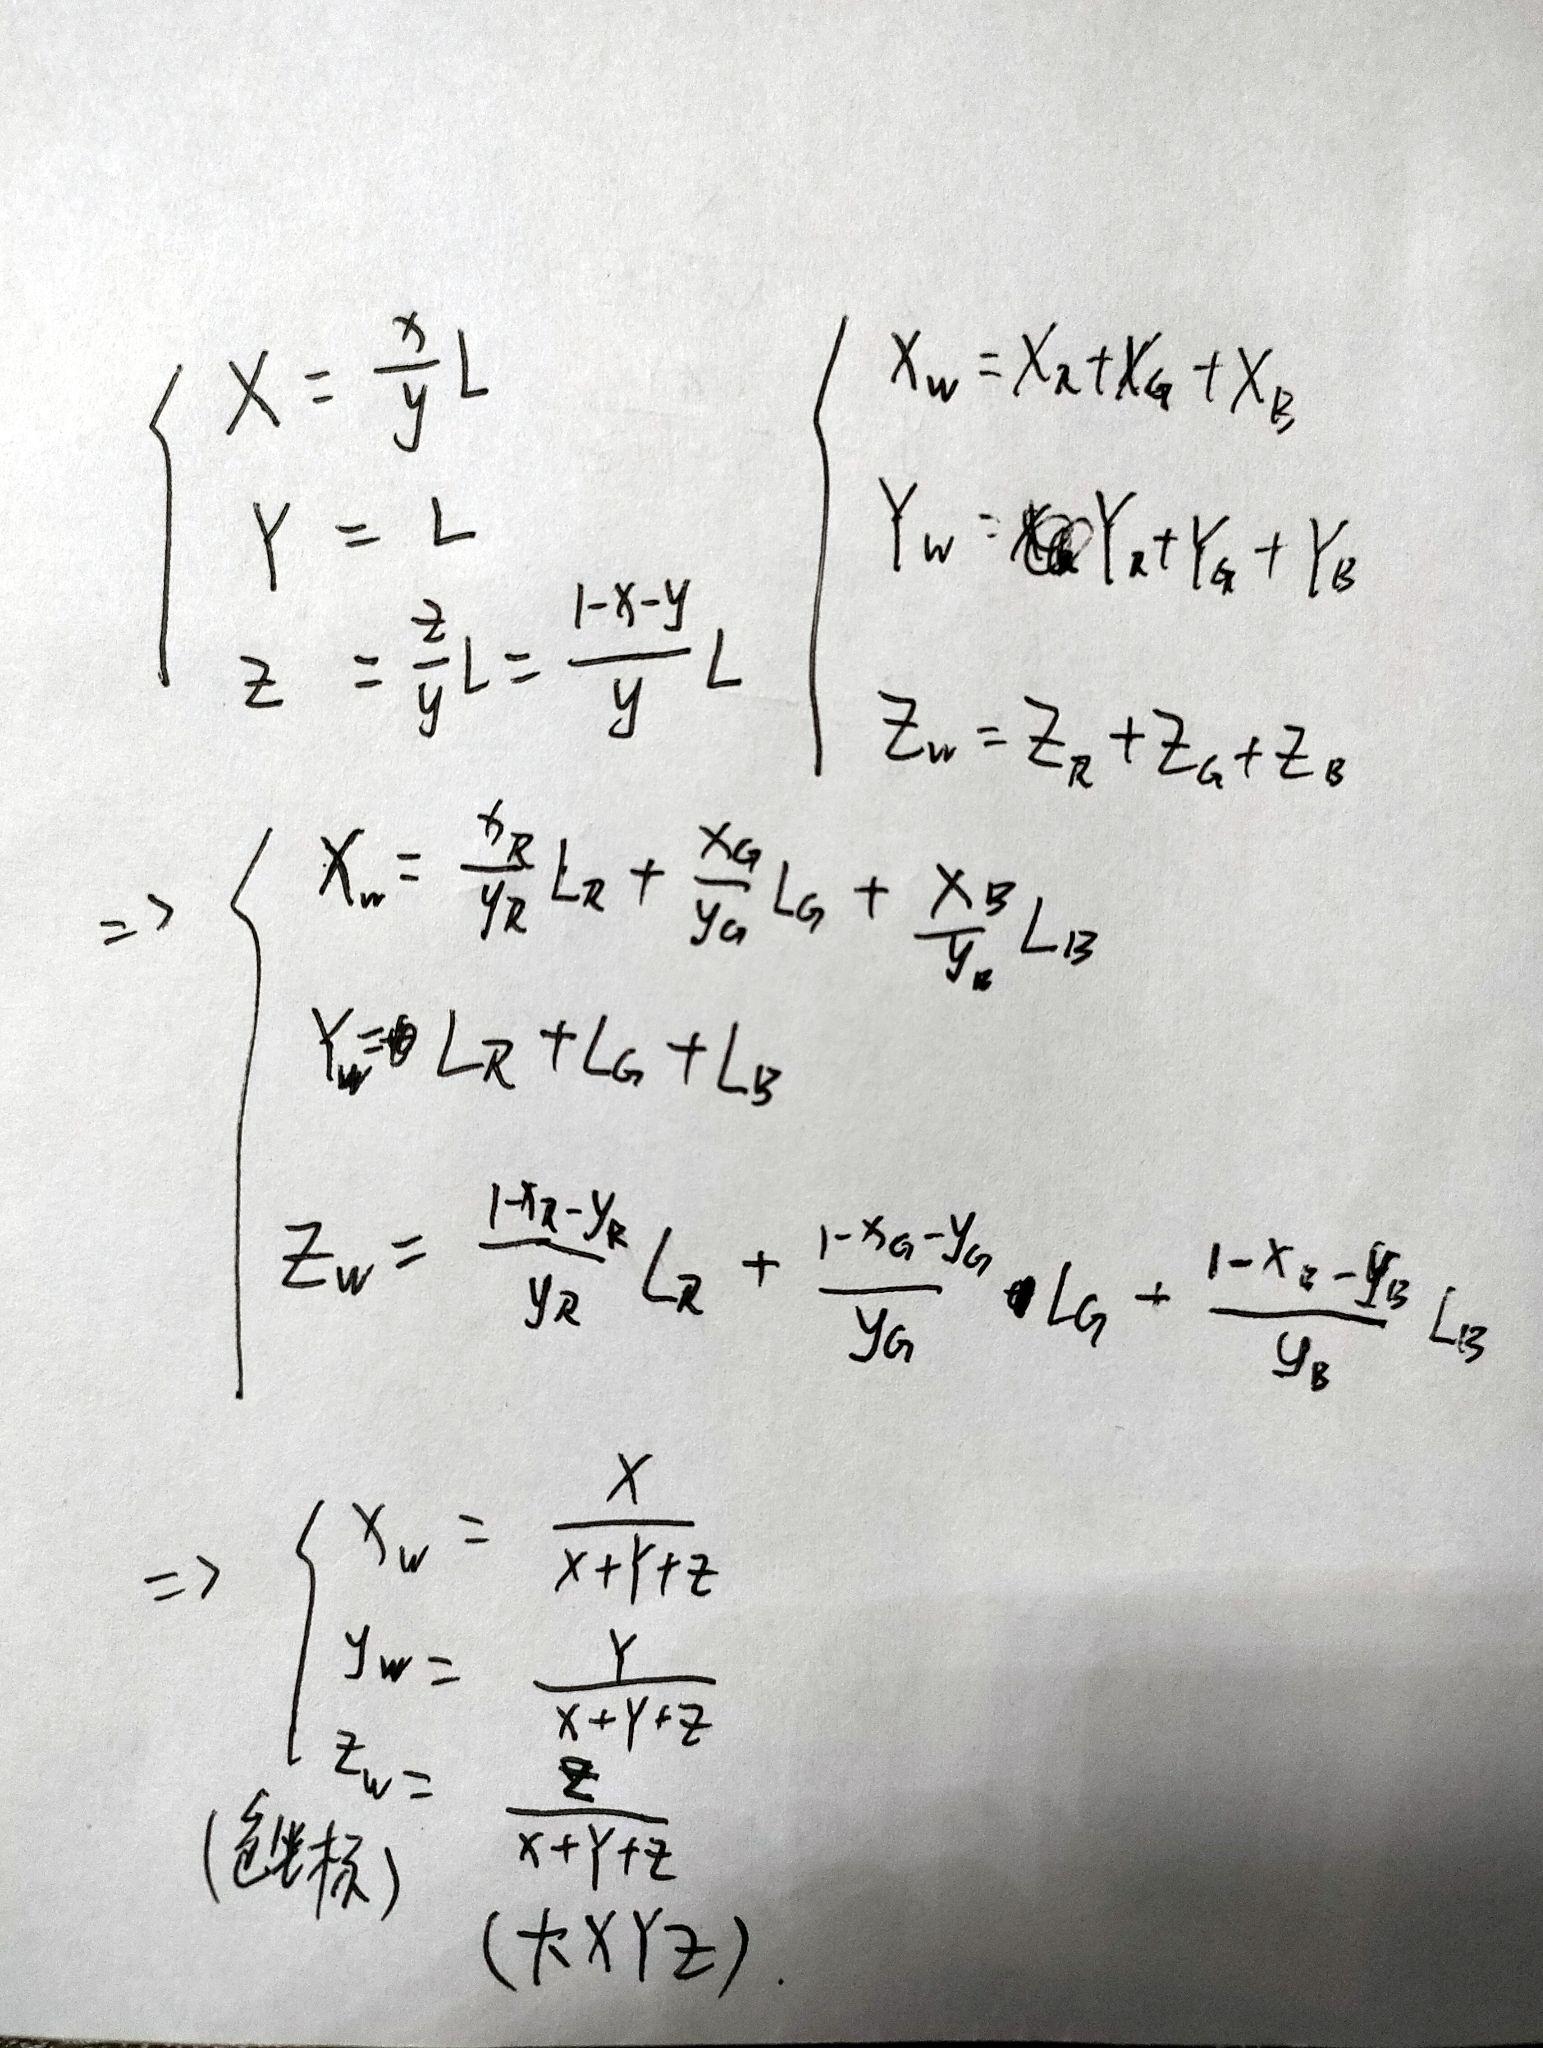 X = x/y L
Y = L
Z = z/y L = (1-x-y)/y L
X_W = X_R + X_G + X_B
Y_W = Y_R + Y_G + Y_B
Z_W = Z_R + Z_G + Z_B
=> X_W = x_R/y_R L_R + x_G/y_G L_G + x_B/y_B L_B
Y_W = L_R + L_G + L_B
Z_W = (1-x_R-y_R)/y_R L_R + (1-x_G-y_G)/y_G L_G + (1-x_B-y_B)/y_B L_B
=> x_W = X/(X+Y+Z)
y_W = Y/(X+Y+Z)
z_W = Z/(X+Y+Z)
(色坐标)
(大XYZ).